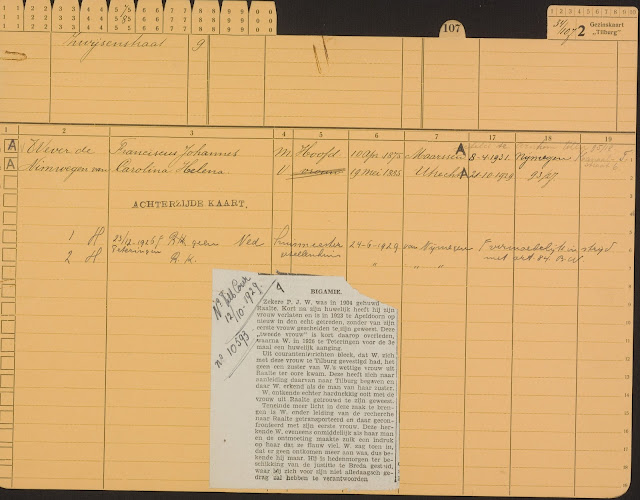 107
2 Gezinskaart
„Tilburg"
Zwijsenstraat 9
1 2 3 4 5 6 7 17 18 19
A Wever de Franciscus Johannes M. Hoofd 10 Apr 1875 Maarssen A 8-4-1931 Nijmegen
A Nimwegen van Carolina Helena V vrouw 19 Mei 1885 Utrecht A 21-10-1929 93/27
ACHTERZIJDE KAART.
1 H 23/12-1926 R.K. geen Ned huismeester 24-6-1929 van Nijmegen vermoedelijk in strijd
Teteringen
2 H R.K. „ „ „ met art 84 B.W
No Tilb Cour
12/10-1929.
no 10593
BIGAMIE.
Zekere P. J. W. was in 1904 gehuwd
Raalte. Kort na zijn huwelijk heeft hij zijn
vrouw verlaten en is in 1923 te Apeldoorn op
nieuw in den echt getreden, zonder van zijn
eerste vrouw gescheiden te zijn geweest. Deze
„tweede vrouw" is kort daarop overleden,
waarna W. in 1926 te Teteringen voor de 3e
maal een huwelijk aanging.
Uit courantenberichten bleek, dat W. zich
met deze vrouw te Tilburg gevestigd had, het
geen een zuster van W.'s wettige vrouw uit
Raalte ter oore kwam. Deze heeft zich naar
aanleiding daarvan naar Tilburg begeven en
daar W. erkend als de man van haar zuster.
W. ontkende echter hardnekkig ooit met de
vrouw uit Raalte getrouwd te zijn geweest.
Teneinde meer licht in deze zaak te brengen
is W. onder leiding van de recherche
naar Raalte getransporteerd en daar gecon-
fronteerd met zijn eerste vrouw. Deze her-
kende W. eveneens onmiddellijk als haar man
en de ontmoeting maakte zulk een indruk
op haar dat ze flauw viel. W. zag toen in,
dat er geen ontkomen meer aan was, dus be-
kende hij maar. Hij is hedenmorgen ter be-
schikking van de justitie te Breda gesteld,
waar hij zich voor zijn niet alledaagsch ge-
drag zal hebben te verantwoorden